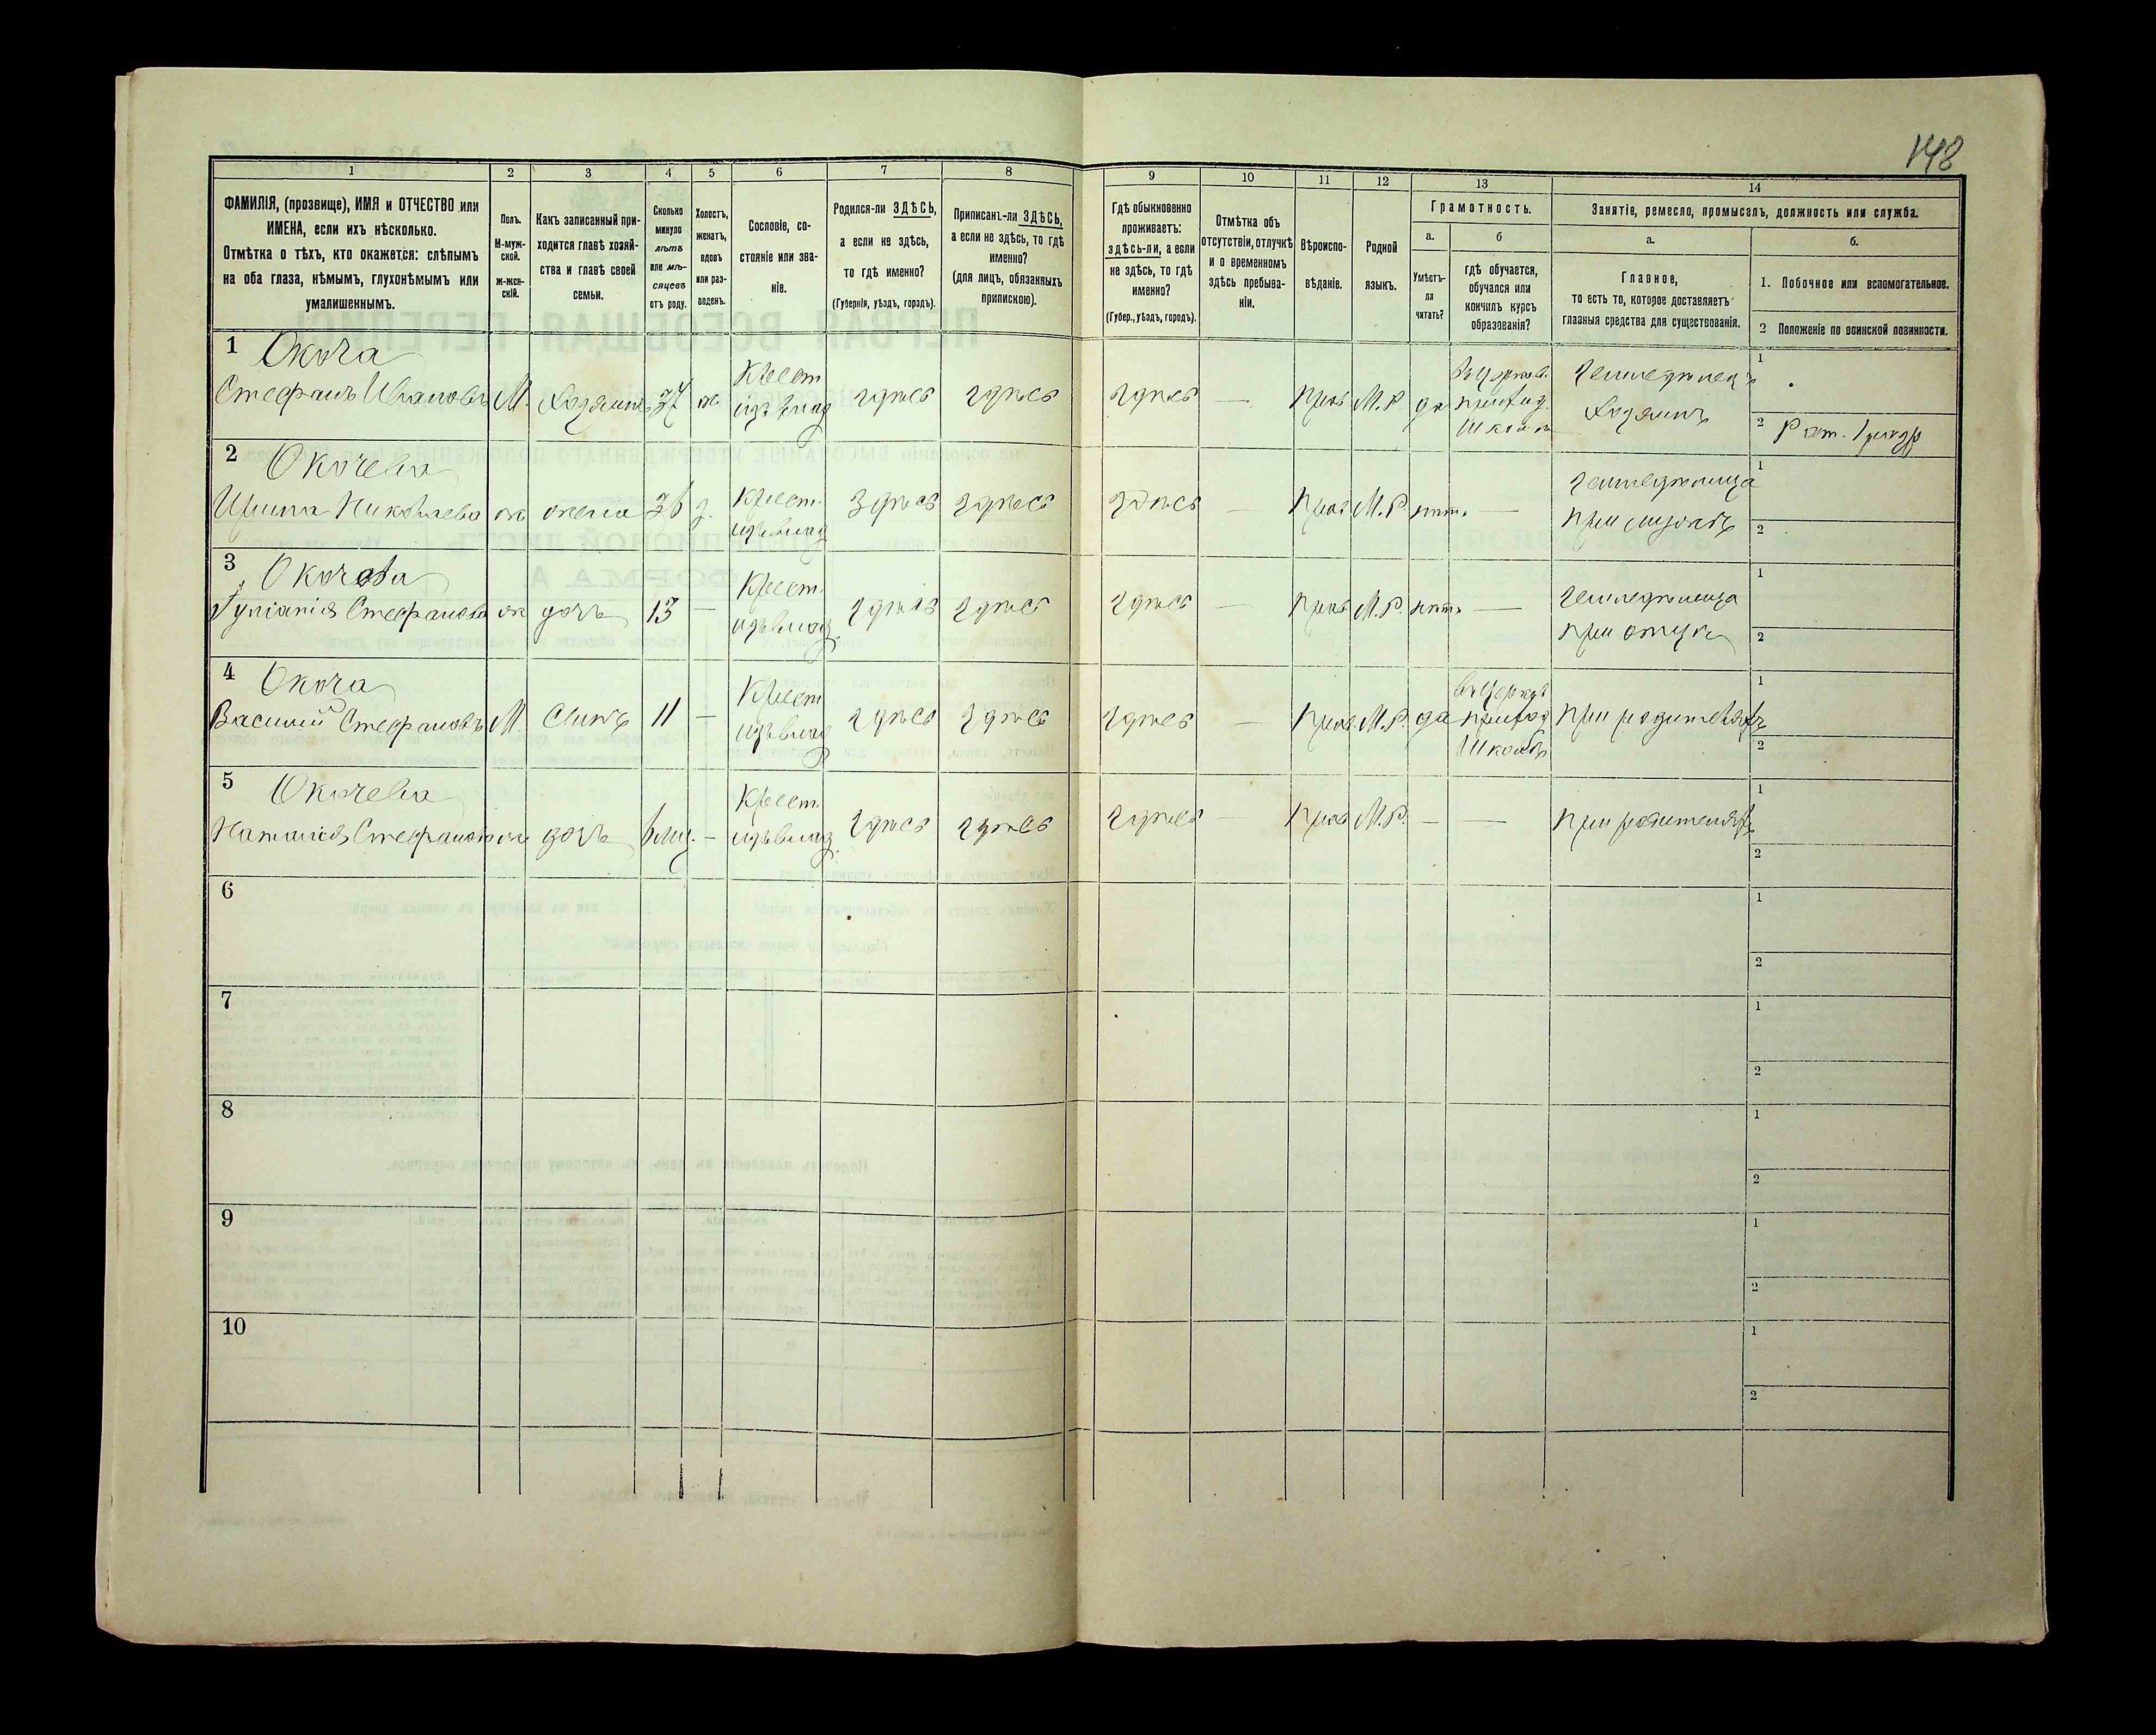 148
1
2
3
4
5
6
7
8
9
10
11
12
13
14
ФАМИЛІЯ, (прозвище), ИМЯ и ОТЧЕСТВО или
ИМЕНА, если ихъ нѣсколько.
Отмѣтка о тѣхъ, кто окажется: слѣпымъ
на оба глаза, нѣмымъ, глухонѣмымъ или
умалишеннымъ.
Полъ.
М-муж-
ской.
ж-жен-
скій.
Какъ записанный при-
ходится главѣ хозяй-
ства и главѣ своей
семьи.
Сколько
минуло
лѣтъ
или мѣ-
сяцевъ
отъ роду.
Холостъ,
женатъ,
вдовъ
или раз-
веденъ.
Сословіе, со-
стояніе или зва-
ніе.
Родился-ли ЗДѢСЬ,
а если не здѣсь,
то гдѣ именно?
(Губернія, уѣздъ, городъ).
Приписанъ-ли ЗДѢСЬ,
а если не здѣсь, то гдѣ
именно?
(для лицъ, обязанныхъ
припискою).
Гдѣ обыкновенно
проживаетъ:
здѣсь-ли, а если
не здѣсь, то гдѣ
именно?
(Губер., уѣздъ, городъ).
Отмѣтка объ
отсутствіи, отлучкѣ
и о временномъ
здѣсь пребыва-
ніи.
Вѣроиспо-
вѣданіе.
Родной
языкъ.
Грамотность.
а.
Умѣетъ-
ли
читать?
б
гдѣ обучается,
обучался или
кончилъ курсъ
образованія?
Занятіе, ремесло, промыселъ, должность или служба.
а.
Главное,
то есть то, которое доставляетъ
главныя средства для существованія.
б.
1. Побочное или вспомогательное.
2 Положеніе по воинской повинности.
1 Окоча
Стефанъ Ивановъ М. Хозяинъ 37 ж. Крест. изъ влад здѣсь здѣсь здѣсь — Прав М.Р. да въ церков. приход. школѣ Земледѣлецъ хозяинъ
1
2 Рат. 1 разр
2 Окочева
Ирина Николаева ж жена 36 з. Крест. изъ влад здѣсь здѣсь здѣсь — Прав М.Р. нѣтъ — Земледѣлица при мужѣ
1
2
3 Окочева
Стефанова ж дочь 13 — Крест. изъ влад. здѣсь здѣсь здѣсь — Прав М.Р. нѣтъ — Земледѣлица при отцѣ
1
2
4 Окоча
Василій Стефановъ М. Сынъ 11 — Крест изъ влад здѣсь здѣсь здѣсь — Прав. М.Р. да въ церков приход школѣ при родителяхъ
1
2
5 Окочева
Наталія Стефанова ж дочь 6 мц. — Крест. изъ влад. здѣсь здѣсь здѣсь — Прав М.Р. — — при родителяхъ
1
2
6
1
2
7
1
2
8
1
2
9
1
2
10
1
2